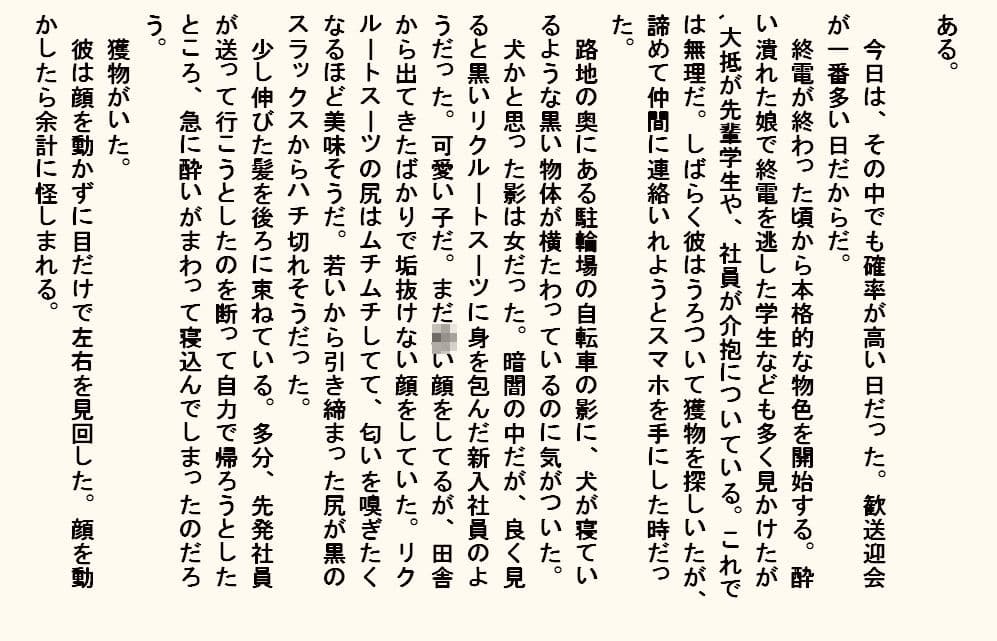 ある。
　今日は、その中でも確率が高い日だった。歓送迎会
が一番多い日だからだ。
　終電が終わった頃から本格的な物色を開始する。酔
い潰れた娘で終電を逃した学生なども多く見かけたが
、大抵が先輩学生や、社員が介抱についている。これで
は無理だ。しばらく彼はうろついて獲物を探しいたが、
諦めて仲間に連絡いれようとスマホを手にした時だっ
た。
　路地の奥にある駐輪場の自転車の影に、犬が寝てい
るような黒い物体が横たわっているのに気がついた。
　犬かと思った影は女だった。暗闇の中だが、良く見
ると黒いリクルートスーツに身を包んだ新入社員のよ
うだった。可愛い子だ。まだい顔をしてるが、田舎
から出てきたばかりで垢抜けない顔をしていた。リク
ルートスーツの尻はムチムチしてて、匂いを嗅ぎたく
なるほど美味そうだ。若いから引き締まった尻が黒の
スラックスからハチ切れそうだった。
　少し伸びた髪を後ろに束ねている。多分、先発社員
が送って行こうとしたのを断って自力で帰ろうとした
ところ、急に酔いがまわって寝込んでしまったのだろ
う。
　獲物がいた。
　彼は顔を動かずに目だけで左右を見回した。顔を動
かしたら余計に怪しまれる。